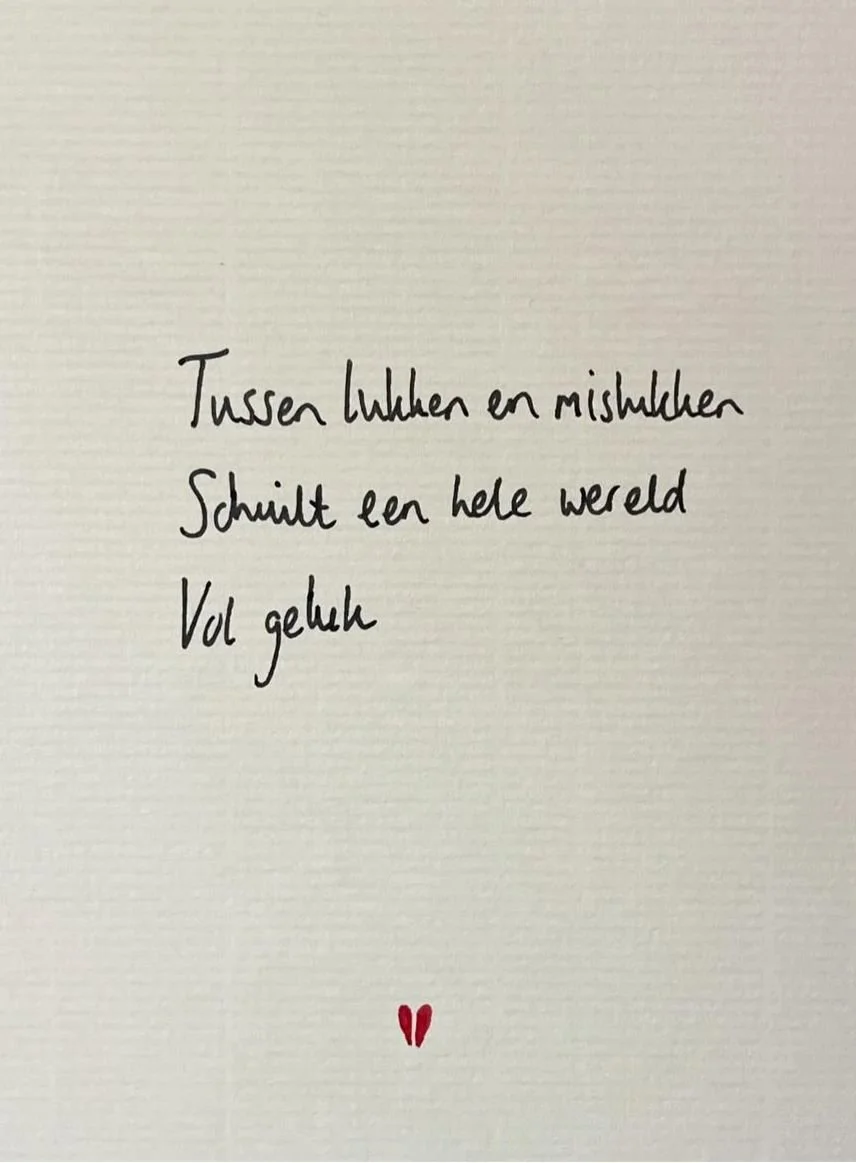 Tussen lukken en mislukken
Schuilt een hele wereld
Vol geluk